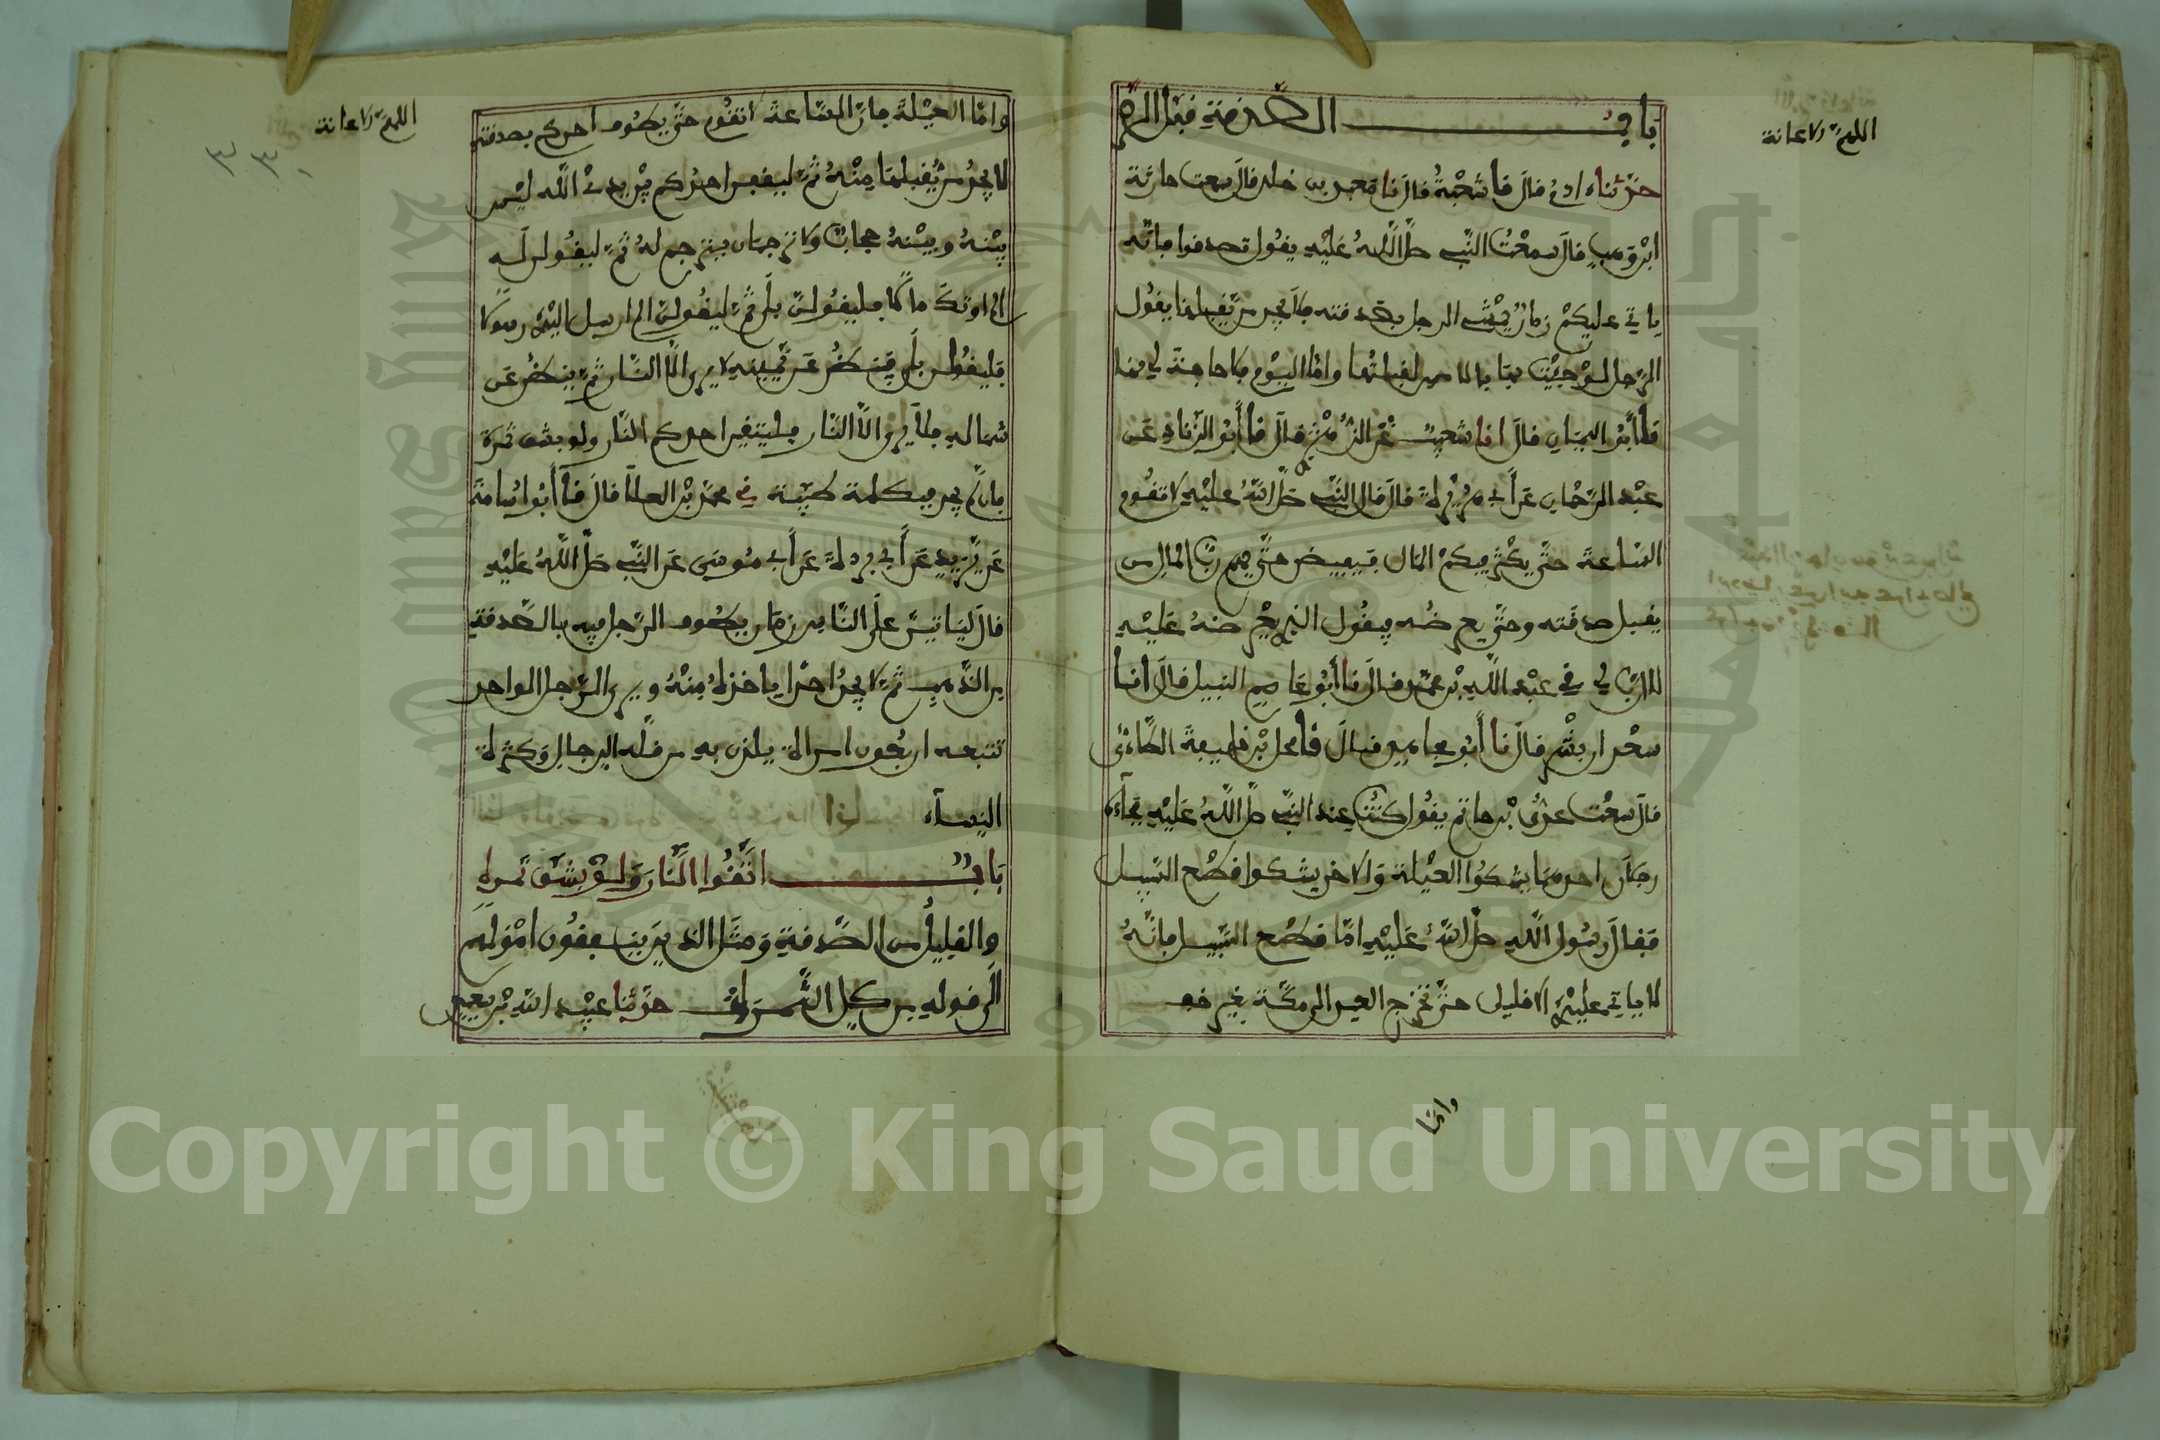 اللهم الاعانة
باب الصدقة قبل الرد
حدثناه ادم قال نا شعبة قال نا معبد بن خلد قال سمعت حارثة
ابن وهب قال سمعت النبي صلى الله عليه يقول تصدقوا فانه
ياتي عليكم زمان يمشي الرجل بصدقته فلا يجد من يقبلها يقول
الرجل لو جيت بها بالامس لقبلتها واما اليوم فلا حاجة لي بها
نا أبو اليمان قال انا شعيب قال نا أبو الزناد عن
عبد الرحمان عن أبي هريرة قال قال النبي صلى الله عليه لا تقوم
الساعة حتى يكثر فيكم المال فيفيض حتى يهم رب المال من
يقبل صدقته وحتى يعرضه فيقول الذي يعرضه عليه
لا ارب لي في عبد الله بن محمد قال نا أبو عاصم النبيل قال انا
سعدان بن بشر قال نا أبو مجاهد قال نا محل بن خليفة الطاءي
قال سمعت عدي بن حاتم يقول كنت عند النبي صلى الله عليه فجآءه
رجلان احدهما يشكوا العيلة والاخر يشكوا قطع السبيل
فقال رسول الله صلى الله عليه اما قطع السبيل فانه
لا ياتي عليك الا قليل حتى تخرج العير الى مكة بغير خفير
واما
اللهم الاعانة
٣٣٠
واما العيلة فان الساعة لا تقوم حتى يطوف احدكم بصدقته
لا يجد من يقبلها منه ثم ليقفن احدكم بين يدي الله ليس
بينه وبينه حجاب ولا ترجمان يترجم له ثم ليقولن له
الم اوتك مالا فليقولن بلى ثم ليقولن الم ارسل اليك رسولا
فليقولن بلى فينظر عن يمينه فلا يرى الا النار ثم ينظر عن
شماله فلا يرى الا النار فليتقين احدكم النار ولو بشق تمرة
فان لم يجد فبكلمة طيبة في محمد بن العلا قال نا أبو اسامة
عن بريد عن أبي بردة عن أبي موسى عن النبي صلى الله عليه
قال لياتين على الناس زمان يطوف الرجل فيه بالصدقة
من الذهب ثم لا يجد احدا ياخذها منه ويرى الرجل الواحد
تتبعه اربعون امراة يلذن به من قلة الرجال وكثرة
النسآء
باب اتقوا النار ولو بشق تمرة
والقليل من الصدقة ومثل الذين ينفقون امولهم
الى قوله من كل الثمرات حدثنا عبيد الله بن سعيد